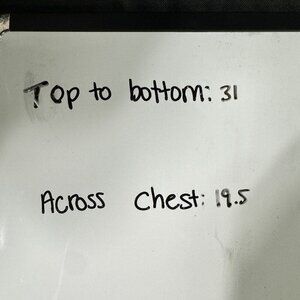 Top to bottom: 31
Across Chest: 19.5